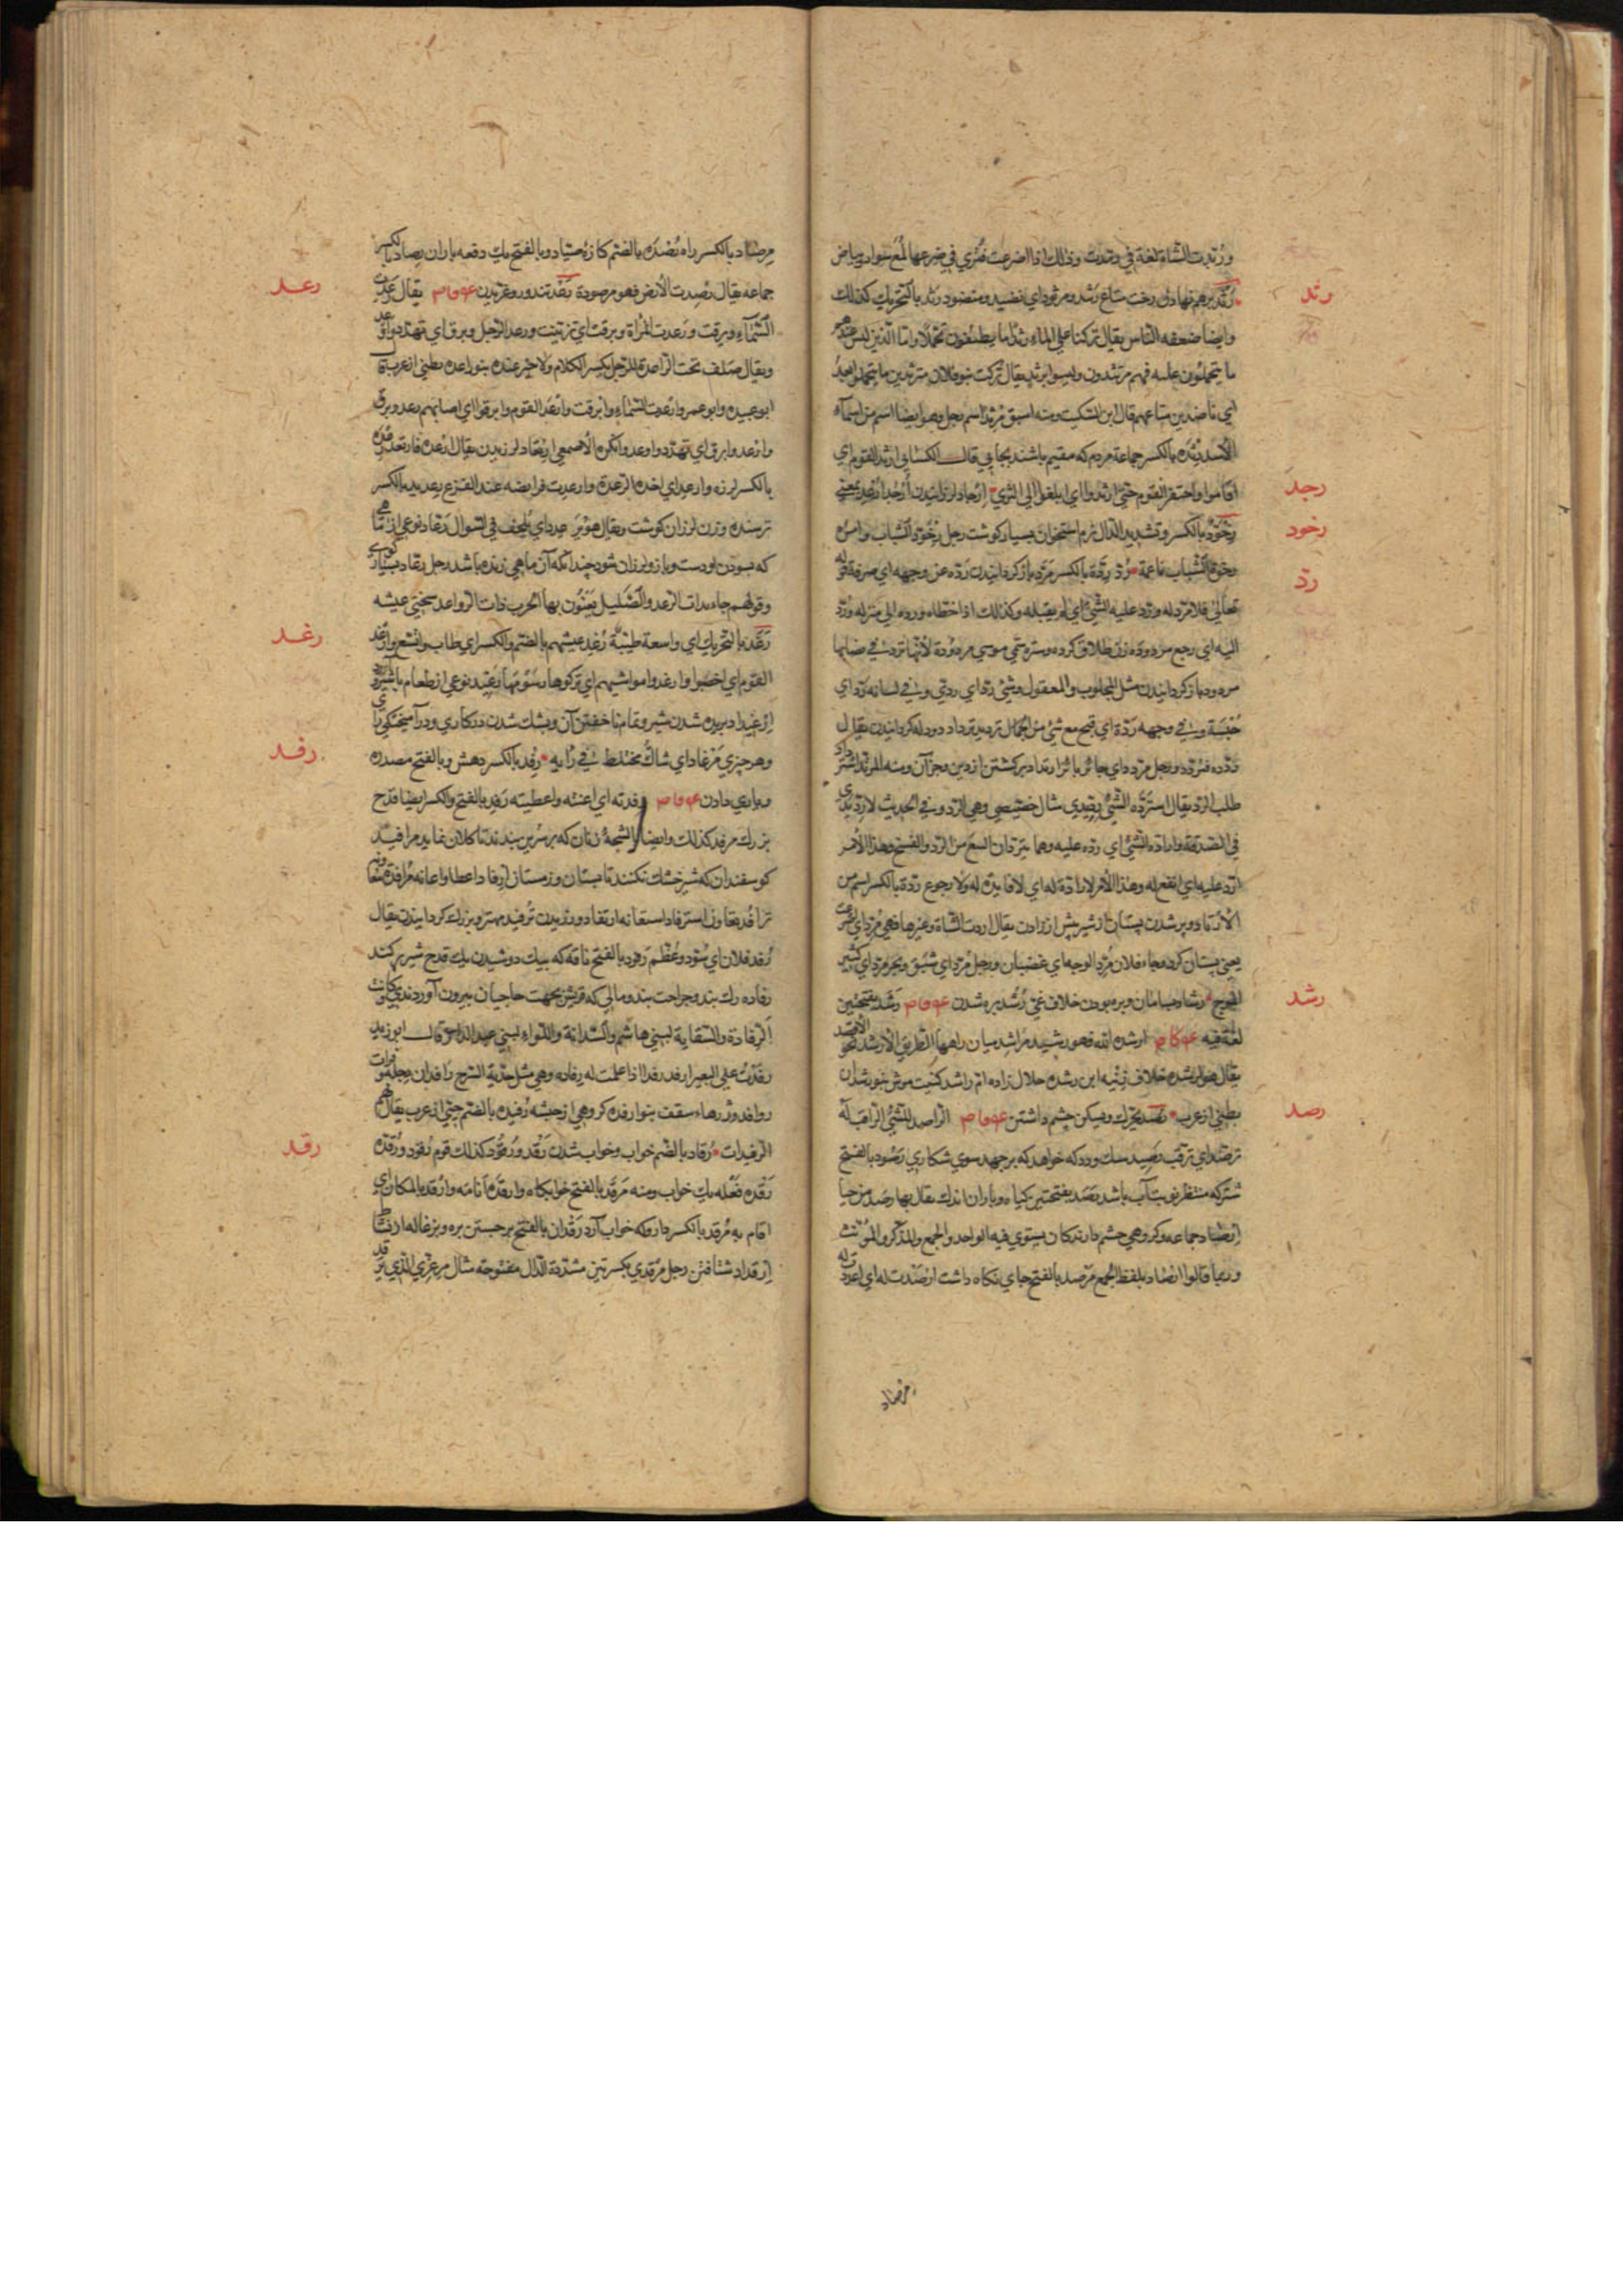 ورُبّدت الشاة لغة فى رمّدت وذلك اذا اضرعت فترى فى ضرعها لُمَع سواد وبياض
رثد
رَثْد برهم نهادن رخت متاع رَثَد ومرثود اى نضيد ومنضود رثد بالتحريك كذلك
وايضا ضعفه الناس يقال تركنا على الماء رثدا ما يطيقون تحملا واما الذين ليس عندهم
ما يتحملون عليه فهم مرتثدون وليسوا برثد يقال تركت بنو فلان مرتثدين ما تحملوا بعدُ
اى ناضدين متاعهم قال ابن السكيت ومنه اسبق مَرْثد اسم رجل وهو ايضا اسم من اسماء
الاسد رِثْدَه بالكسر جماعة مردم كه مقيم باشند بجايى قال الكسائى ارثد القوم اى
اقاموا واحتفر القوم حتى ارثدوا اى ابلغوا الى الثرى ارجاد لرزانيدن اُرْجِد اُرْعِد بمعنى
رجد
رِخْوَدّ بالكسر وتشديد الدال نرم استخوان بسيار كوشت رجل رِخْوَدّ الشباب وامرأه
رخود
رخودّة الشباب ناعمة رَدّ رِدّة بالكسر مَرَدّ بازكردانيدن ردّه عن وجهه اى صرفه قوله
ردّ
تعالى فلا مردّ له وردّ عليه الشئ اى لم يقبله وكذلك اذا خطاه ورده الى منزله ورُدّ
اليه اى رجع مردوده زن طلاق كرده وستره تمى موسى مردودة لانها تردّ فى نصابها
مردود بازكردانيدن مثل المجلوب والمعقول وشئ ردّ اى ردئ وفى لسانه ردّ اى
حُبْسَة وفى وجهه رَدّة اى قبح مع شئ من الجمال ترديد ترداد دودله كردانيدن يقال
ردّده فتردد ورجل مردد اى حائر بائر ارتداد بركشتن از دين وجز آن ومنه المرتد استرداد
طلب الرد يقال استردّه الشئ رِدِّيدى مثال خصيصى وهى الرد وفى الحديث لا رديدى
فى الصدقة وارادّه الشئ اى ردّه عليه وهما يترادان البيع من الرد والفسخ وهذا الامر
اردّ عليه اى انفع له وهذا الامر لا رادّة له اى لا فايدة له ولا رجوع ردة بالكسر اسم من
الارتداد وپر شدن پستان از شير پيش از زادن يقال اردت الشاة وغيرها فهى مُرِدّ اى اضرعت
يعنى پستان كرد وجاء فلان مُرِدّ الوجه اى غضبان ورجل مُرِدّ اى شبق وبحر مردّ اى كثير
الموج رشاد بسامان وبره بودن خلاف غىّ رُشْد بره شدن رَشَد بفتحتين
رشد
لغة فيه ارشده الله فهو رشيد مَراشِد ميان راهها الطريق الارشد نحو الاقصد
يقال هو لرشده خلاف زِنْيه ابن رشده حلال زاده ام راشد كنيت موش بنو رشدان
بطنى از عرب رَصَد يحرّك ويسكن چشم داشتن الراصد للشئ الراقب له
رصد
ترصّد اى ترقّب رَصيد سك ودد كه خواهد كه برجهد سوى شكارى رَصود بالفتح
شترى كه منتظر نوبت آب باشد رَصَد بفتحتين كياه وباران اندك يقال بها رصد من حيا
ارصاد جماعه وكروهى چشم دارندكان يستوى فيه الواحد والجمع والمذكر والمؤنث
وربما قالوا ارصاد بلفظ الجمع مَرْصد بالفتح جاى نكاه داشت ارصدت له اى اعددت له
مرصاد
مِرصاد بالكسر راه رُصْدَه بالضم كازه صيّاد وبالفتح يك دفعه باران رِصاد بالكسر
جماعه يقال رُصِدت الارض فهو مرصودة رَعْد تندر وغريدن يقال رعدت
رعد
السماء وبرقت ورعدت المرأة وبرقت اى تزينت ورعد الرجل وبرق اى تهدد واوعد
ويقال صلف تحت الراعدة للرجل يكثر الكلام ولا خير عنده بنو راعده بطنى از عرب قال
ابو عبيده وابو عمرو ارعدت السماء وابرقت وارعد القوم وابرقوا اى اصابهم رعد وبرق
وارعد وابرق اى تهدد واوعد وانكره الاصمعى ارتعاد لرزيدن يقال ارعده فارتعد رعده
بالكسر لرزه وارعد اى اخذه الرعدة وارعدت فرايضه عند الفزع رعديد بالكسر
ترسنده وزن لرزان كوشت ويقال هو يُرَعْدِد اى يُلْحِف فى السوال رعّاد نوعى از ماهى
كه بسودن او دست وبازو لرزان شود چندانكه آن ماهى زنده باشد رجل رعّاد بسيار كوى
وقولهم جاء بذات الرعد والصليل يَعنُون بها الحرب ذات الرواعد سختى عيشه
رَغَد بالتحريك اى واسعة طيبة رُغِد عيشهم بالضم والكسر اى طاب واتسع وارغد
رغد
القوم اى اخصبوا وارغدوا مواشيهم اى تركوها وسومها رغيد نوعى از طعام باشير وآرد
ارغيداد بريده شدن شير وتمام ناخفتن آن وبشك شدن در كارى ودرآميختكى راى
وهر چيزى مُرْغادّ اى شاكّ مختلط فى رايه رِفْد بالكسر دهش وبالفتح مصدره
رفد
ويارى دادن رفدته اى اعنته واعطيته رَفْد بالفتح والكسر ايضا قدح
بزرك مرفد كذلك وايضا الشحمة زنان كه بر سرين بندند تا كلان نمايد مرافيد
كوسفندان كه شير خشك نكنند تابستان وزمستان ارفاد اعطا واعانه مُرافده منه
ترافُد تعاون استرفاد استعانه ارتفاد ورزيدن تُرفيد مهتر وبزرك كردانيدن يقال
رُفّد فلان اى سُوّد وعُظّم رَفود بالفتح ناقه كه بيك دوشيدن يك قدح شير پر كند
رفاده رك بند وجراحت بند ومالى كه قريش بجهت حاجيان بيرون آوردندى وكانت
الرفادة والسقاية لبنى هاشم والسدانة واللواء لبنى عبد الدار قال ابو زيد
رفدت على البعير ارفد رفدا اذا عملت له رفاده وهى مثل جدية السرج رافدان دجله وفرات
روافد وزرهاء سقف بنو ارفده كروهى از حبشه رُفيده بالضم حيّى از عرب يقال لهم
الرفيدات رُقاد بالضم خواب وخواب شدن رَقْد ورُقود كذلك قوم رُقود ورُقّد
رقد
رَقْده فَعْله يك خواب ومنه مَرْقَد بالفتح خوابكاه وارقده انامه وارقد بالمكان اى
اقام به مُرقِد بالكسر داروكه خواب آرد رَقَدان بالفتح برجستن بره وبزغاله از نشاط
اِرقداد شتافتن رجل مِرْقِدّى بكسرتين مشدّدة الدال مفتوحة مثال مِرعِزّى الذى يرقدّ